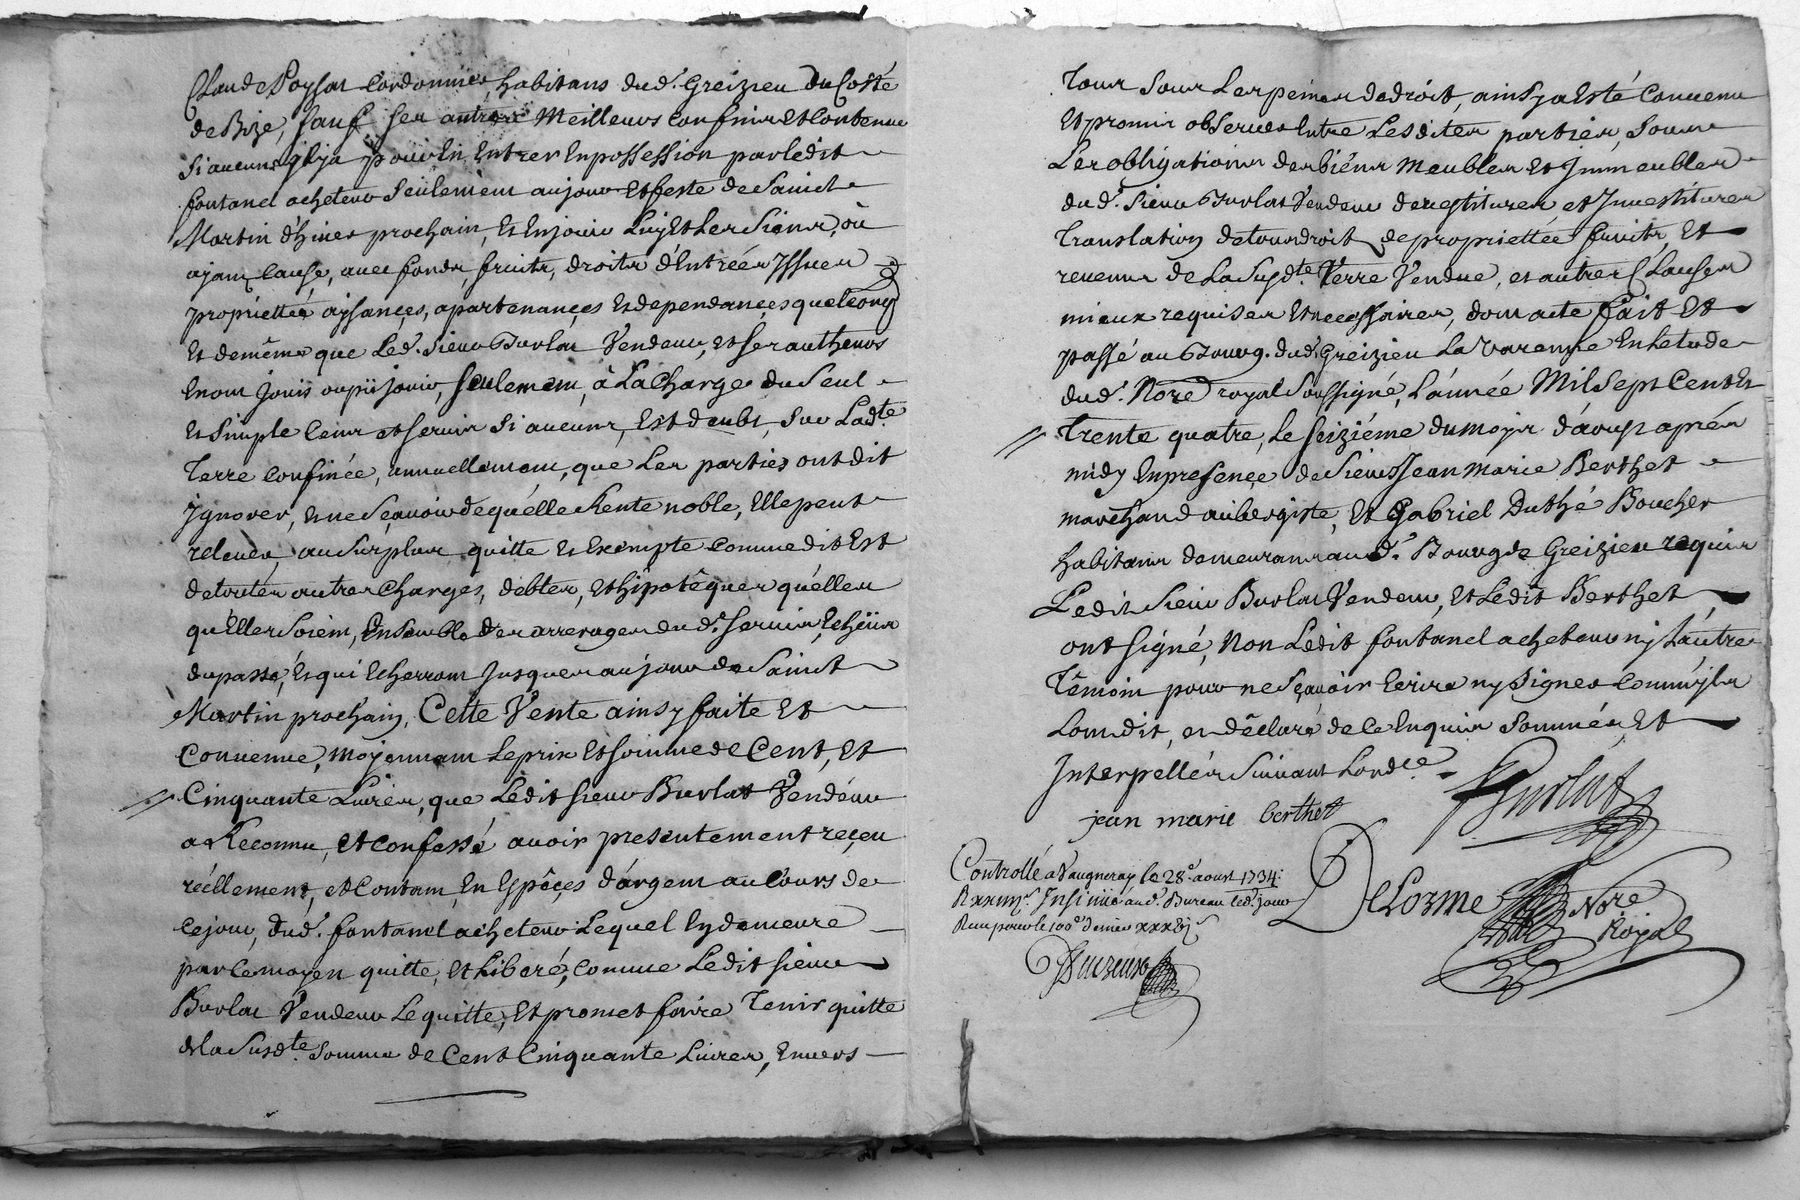 Claude Poysat Cordonnier, habitans dud. Greizieu du Costé
de Bize, sauf ses autres Meilleurs Confins et Contenue
si aucuns il y a pour En Entrer En possession par ledit
fontanel acheteur seulement au jour et feste de Sainct
Martin d'hiver prochain, Et En jouir Luy Et Les Siens, où
ayant Cause, avec fonds, fruits, droits d'Entrées Issues
proprietés aysances, apartenances Et dependances quelconq
Et de même que Led. sieur Burlat Vendeur, et ses autheurs
En ont Jouis ou pû jouir, seulement, à La Charge du Seul
Et Simple Cens et servis si aucuns, Est deubt, sur Ladte
Terre Confinée, annuellement, que Les parties ont dit
Ignorer, Et ne Sçavoir de quélle Rente noble, Elle peut
relever, au Surplus quitte Et Exempte Comme dit Est
de toutes autres Charges, debtes, Et hipotêques quélles
qu'Elles Soient, Ensemble Des arrerages du d. servis, Echeüs
du passé, Et qui Echerront Jusques au jour de Sainct
Martin prochain, Cette Vente ainsy faite Et
Convenue, moyennant Le prix Et somme de Cent, Et
Cinquante Livres, que Lédit sieur Burlat Vendeur
a Reconnu, Et Confessé avoir presentement reçeu
réellement, et Contant, En Espêces d'argent au Cours de
Ce jour, dud. fontanel acheteur Lequel En demeure
par Ce moyen quitte, Et Liberé, Comme Ledit sieur
Burlat Vendeur Le quitte, Et promet faire Tenir quitte
de la Susdte Somme de Cent Cinquante Livres, Envers
Tous Sous Les peines de droit, ainsy a Esté Convenu
Et promis observer Entre Lesdites parties, Sous
Les obligations des biéns Meubles Et Immeubles
du d. Sieur Burlat Vendeur devestitures et Investitures
Translation de tous droits de proprietée fruits, Et
revenus de La Susdte Terre Vendue, et autres Clauses
mieux requises Et necessaires, dont acte fait Et
passé au Bourg. dud. Greizieu La Varenne En L'etude
dud. Nore royal Soussigné, L'année Mil Sept Cent Et
Trente quatre, Le seiziéme du moys d'aoust aprés
midy En presence de Sieurs Jean Marie Berthet
marchand aubergiste, Et Gabriel Duthé Boucher
habitans demeurans aud. Bourg de Greizieu requis
Ledit Sieur Burlat Vendeur, Et Ledit Berthet
ont signé, Non Ledit fontanel acheteur ny L'autre
Témoin pour ne Sçavoir Ecrire ny Signer Comm'ils
L'ont dit, et déclaré de Ce Enquis Sommés, Et
Interpellés Suivant Lordce
Burlat
jean marie berthet
Controllé a Vaugneray le 28e. aoust 1734.
R. Insinué aud. Bureau led. jour
Reçu pour le 100e denier
DeLorme Nore
Royal